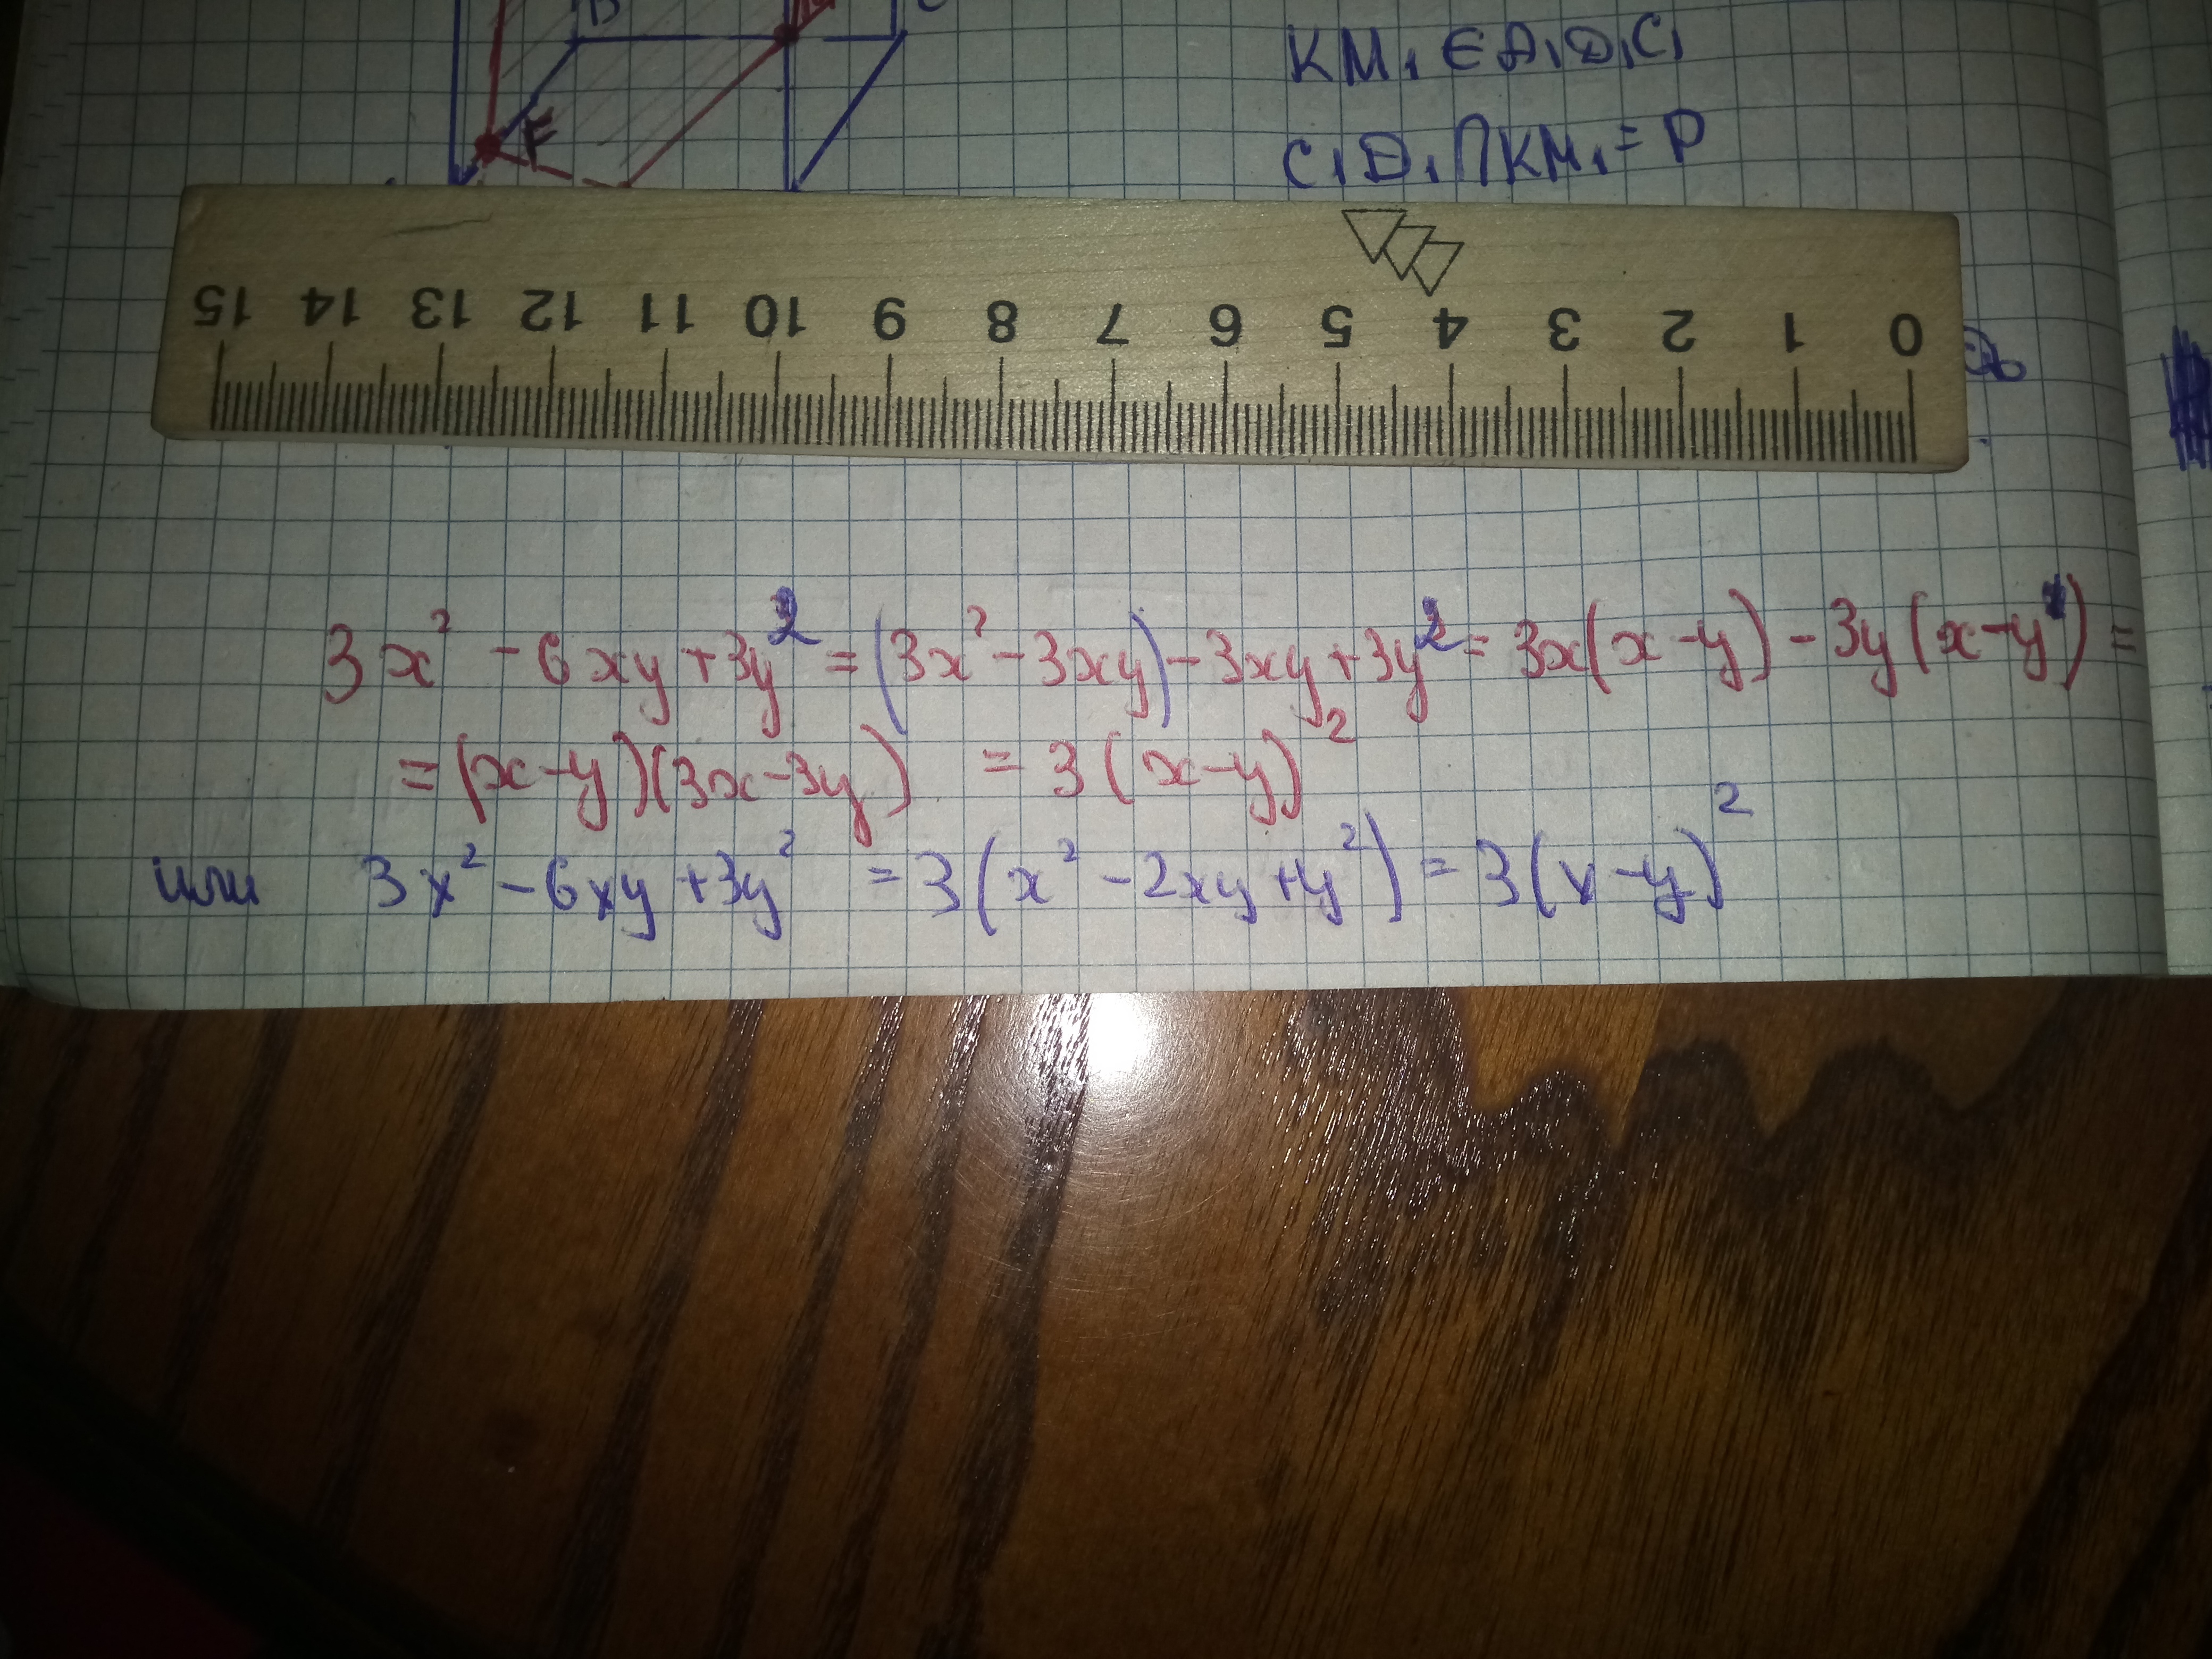 KM₁ ∈ A₁D₁C₁
C₁D₁ ∩ KM₁ = P
F
15 14 13 12 11 10 9 8 7 6 5 4 3 2 1 0
3x² - 6xy + 3y² = (3x² - 3xy) - 3xy + 3y² = 3x(x - y) - 3y(x - y) =
= (x - y)(3x - 3y) = 3(x - y)²
или 3x² - 6xy + 3y² = 3(x² - 2xy + y²) = 3(x - y)²